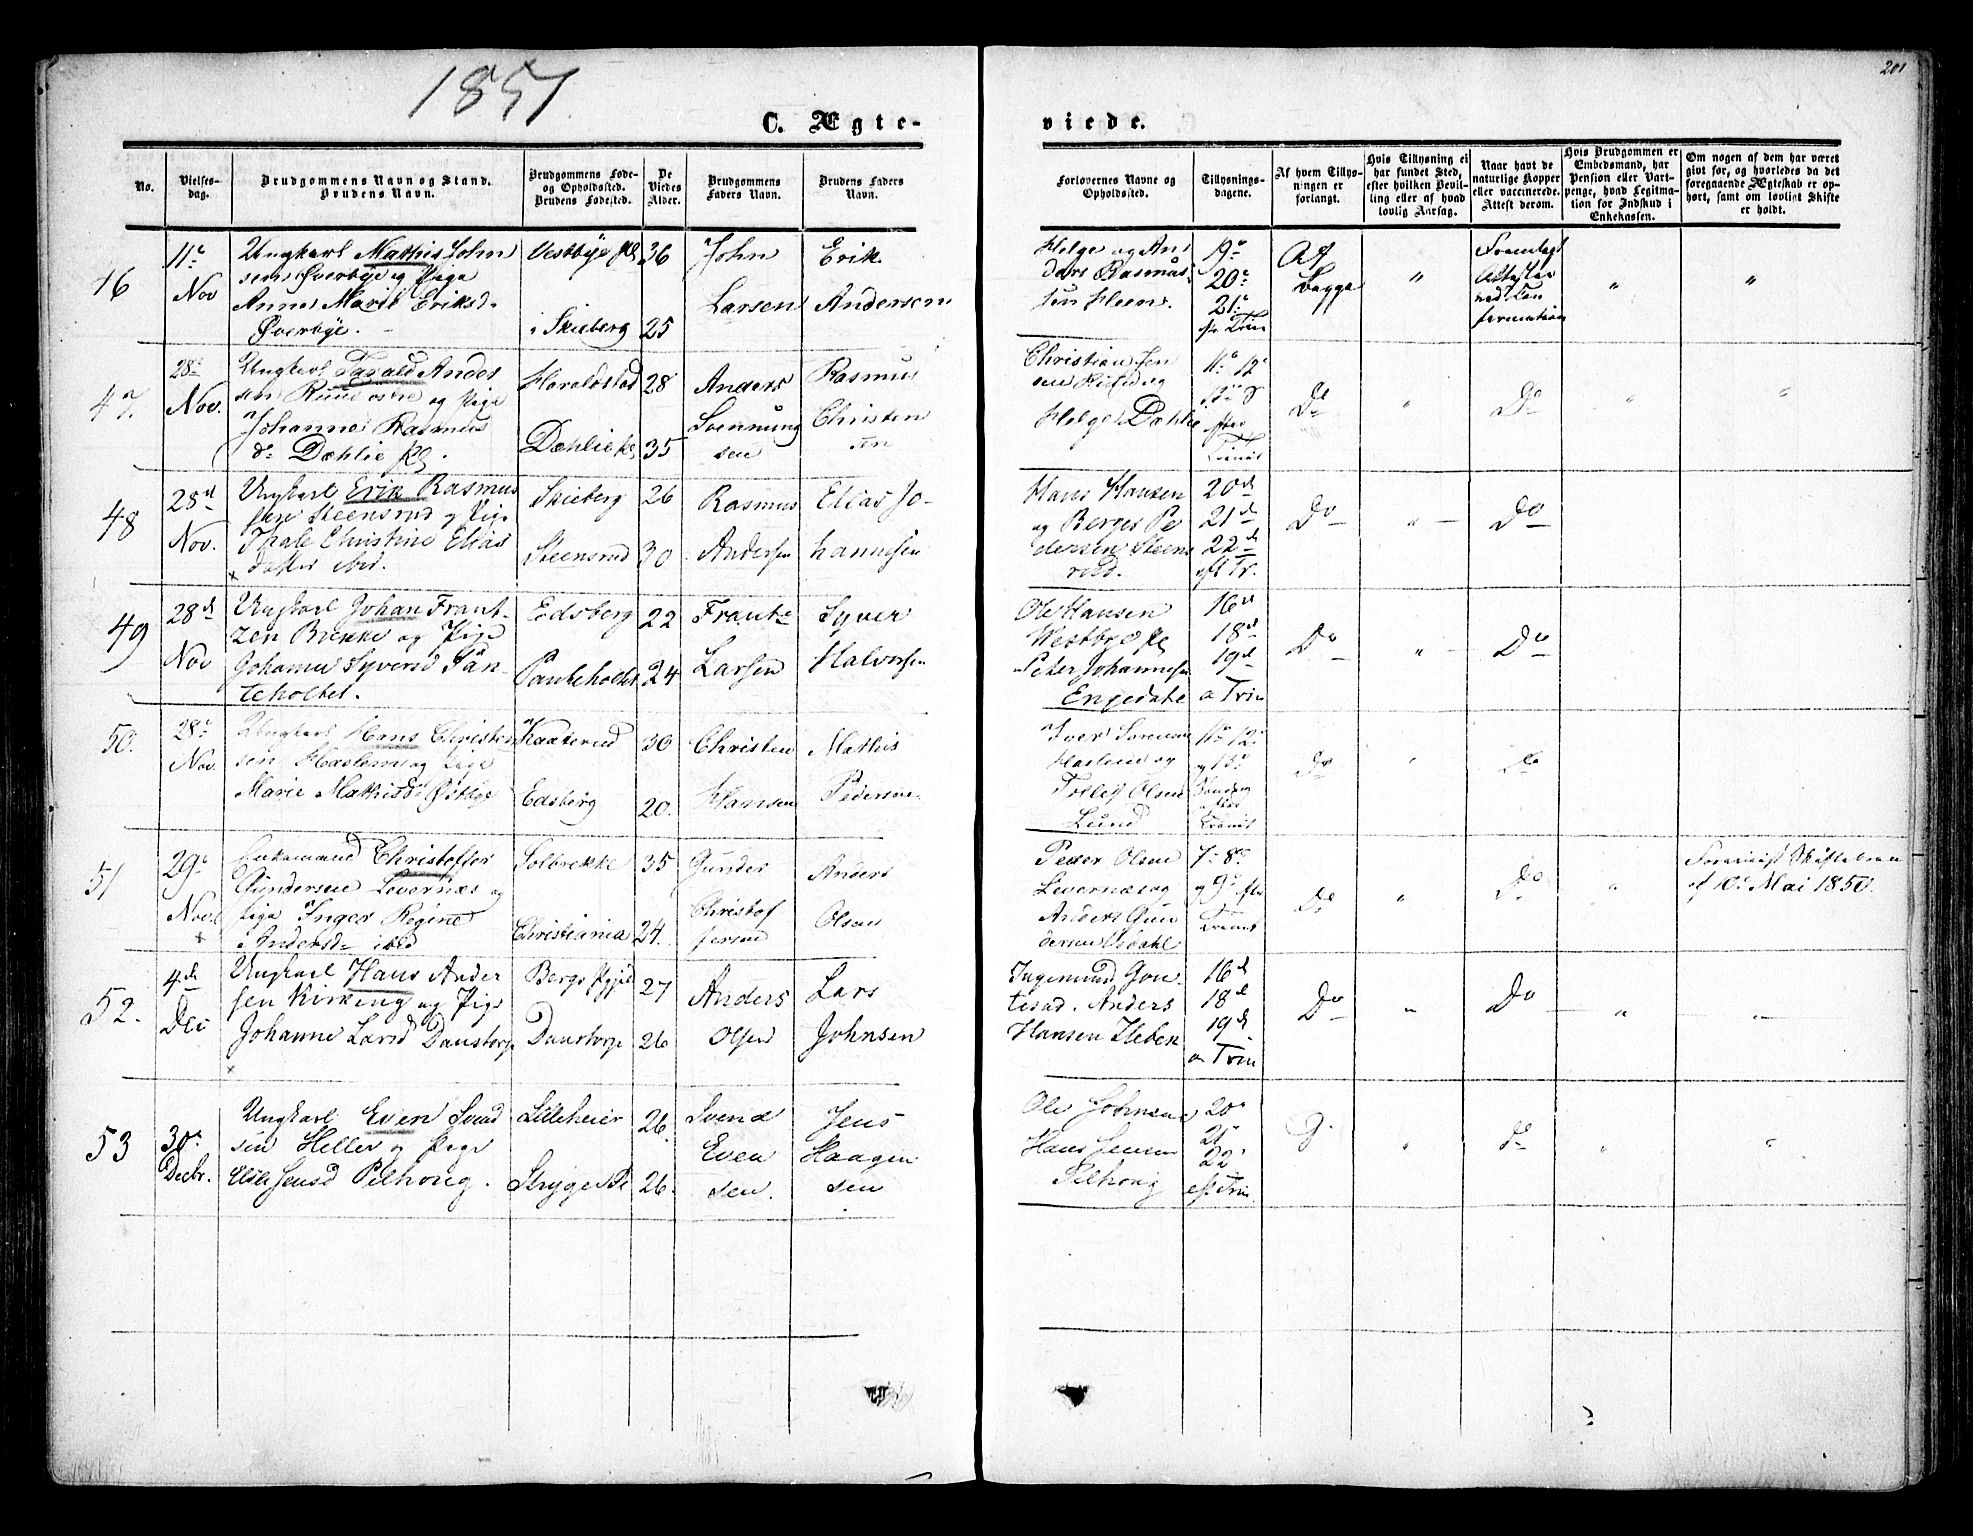 1851
201
C. Ægte-
viede.
No.
Vielses-
dag.
Brudgommens Navn og Stand.
Brudens Navn.
Brudgommens Føde-
og Opholdssted.
Brudens Fødested.
De
Viedes
Alder.
Brudgommens
Faders Navn.
Brudens Faders
Navn.
Forlovernes Navne og
Opholdssted.
Tillysnings-
dagene.
Af hvem Tillys-
ningen er
forlangt.
Hvis Tillysning ei
har fundet Sted,
efter hvilken Bevil-
ling eller af hvad
lovlig Aarsag.
Naar havt de
naturlige Kopper
eller vaccinerede.
Attest derom.
Hvis Brudgommen er
Embedsmand, har
Pension eller Vart-
penge, hvad Legitma-
tion for Indskud i
Enkekassen.
Om nogen af dem har været
givt før, og hvorledes da det
foregaaende Ægteskab er op-
hørt, samt om lovligt Skifte
er holdt.
46
11te
Nov
Ungkarl Mathis John
sen Øverbye og Pige
Anne Marie Eriksd.
Øverbye.
Vestbye
i Skieberg
36
25
John
Larsen
Erik
Andersen
Helge og An
ders Rasmus
sen Heene
19de
20de
21de
Af
begge
"
Fremlagt
Attester
ved Con
firmation
"
"
47.
28de
Nov.
Ungkarl Anders
sen Ruud østre og Pige
Johanne Rasmus
dr Dæhlie
Haraldstad
Dæhlie
28
35
Anders
Svennung
sen
Rasmus
Christen
sen
Christian Jen
sen og
Helge Dæhlie
11te 12te
efter
Trinit
Do
"
Do
"
"
48
28d
Nov.
Ungkarl Erik Rasmus
sen Steensrud og Pige
Thale Christine Elias
datter ibid.
Skieberg
Steensrud
26
30
Rasmus
Andersen
Elias Jo-
hannesen
Hans Hansen
og Berger Pe
dersen Steens
rud.
20d
21d
22d
eft Tr.
Do
"
Do
49
28d
Nov
Ungkarl Johan Frant-
zen Brekke og Pige
Johanne Syversd Pan-
teholtet.
Edsberg
Panteholtet
22
24
Frantz
Larsen
Syver
Halvorsen
Ole Hansen
Westbye
Peter Johannesen
Engedahl
16d
18d
19d
a Trin
Do
"
Do
50.
28de
Nov.
Ungkarl Hans Christen
sen Haslem og Pige
Marie Mathisd
Edsberg
30
20.
Christen
Hansen
Mathis
Pedersen
Iver
Haslem og
Tollef Olsen
Lund
11te 12te
og 13de
Søndag
efter
Trinit
Do
"
Do
51
29de
Nov.
Enkemand Christoffer
Gundersen Levernæs og
Pige Inger Regine
Andersdr ibid
Solbrekke
Christiania
35
24.
Gunder
Christof
fersen
Anders
Olsen
Peder Olsen
Levernæs og
Anders Gun
dersen
7de 8de
og 9de efter
Trinit
Do
"
Do
"
Skiftebrev
af 10de Mai 1850.
52.
4de
Dec
Ungkarl Hans Ander
sen Kirkeng og Pige
Johanne Larsd Danstorp
Bergs
Danstorp
27
26
Anders
Olsen
Lars
Johnsen
Ingemund
Anders
Hansen
16d
18d
19d
a Trin
Do
"
Do
"
"
53
30te
Decbr.
Ungkarl Even Svend
sen Heller og Pige
Else Jensd Pilhoug.
Lilleheier
26.
26.
Svend
Even
sen.
Jens
Haagen
sen
Ole Johnsen
Hans Jensen
Pilhoug
20de
21de
22de
eft Trin.
"
Do
"
"